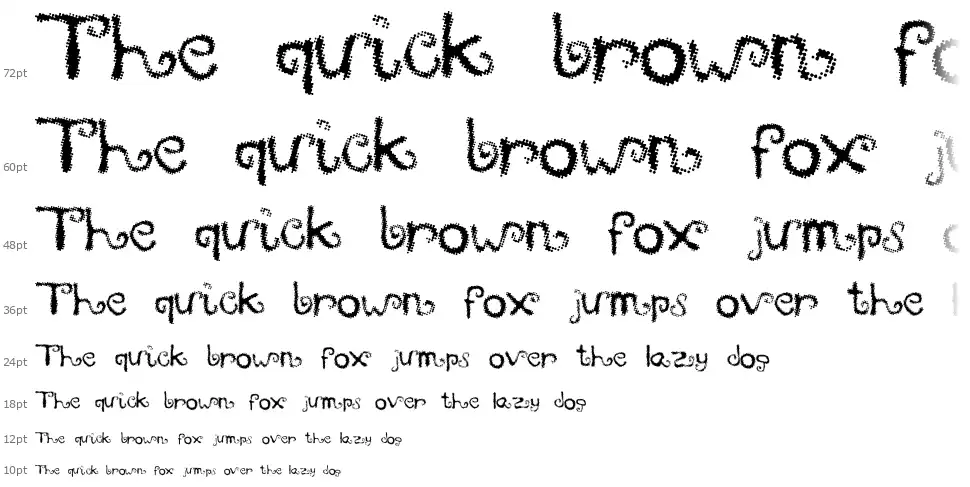 72pt The quick brown fo
60pt The quick brown fox ju
48pt The quick brown fox jumps o
36pt The quick brown fox jumps over the l
24pt The quick brown fox jumps over the lazy dog
18pt The quick brown fox jumps over the lazy dog
12pt The quick brown fox jumps over the lazy dog
10pt The quick brown fox jumps over the lazy dog